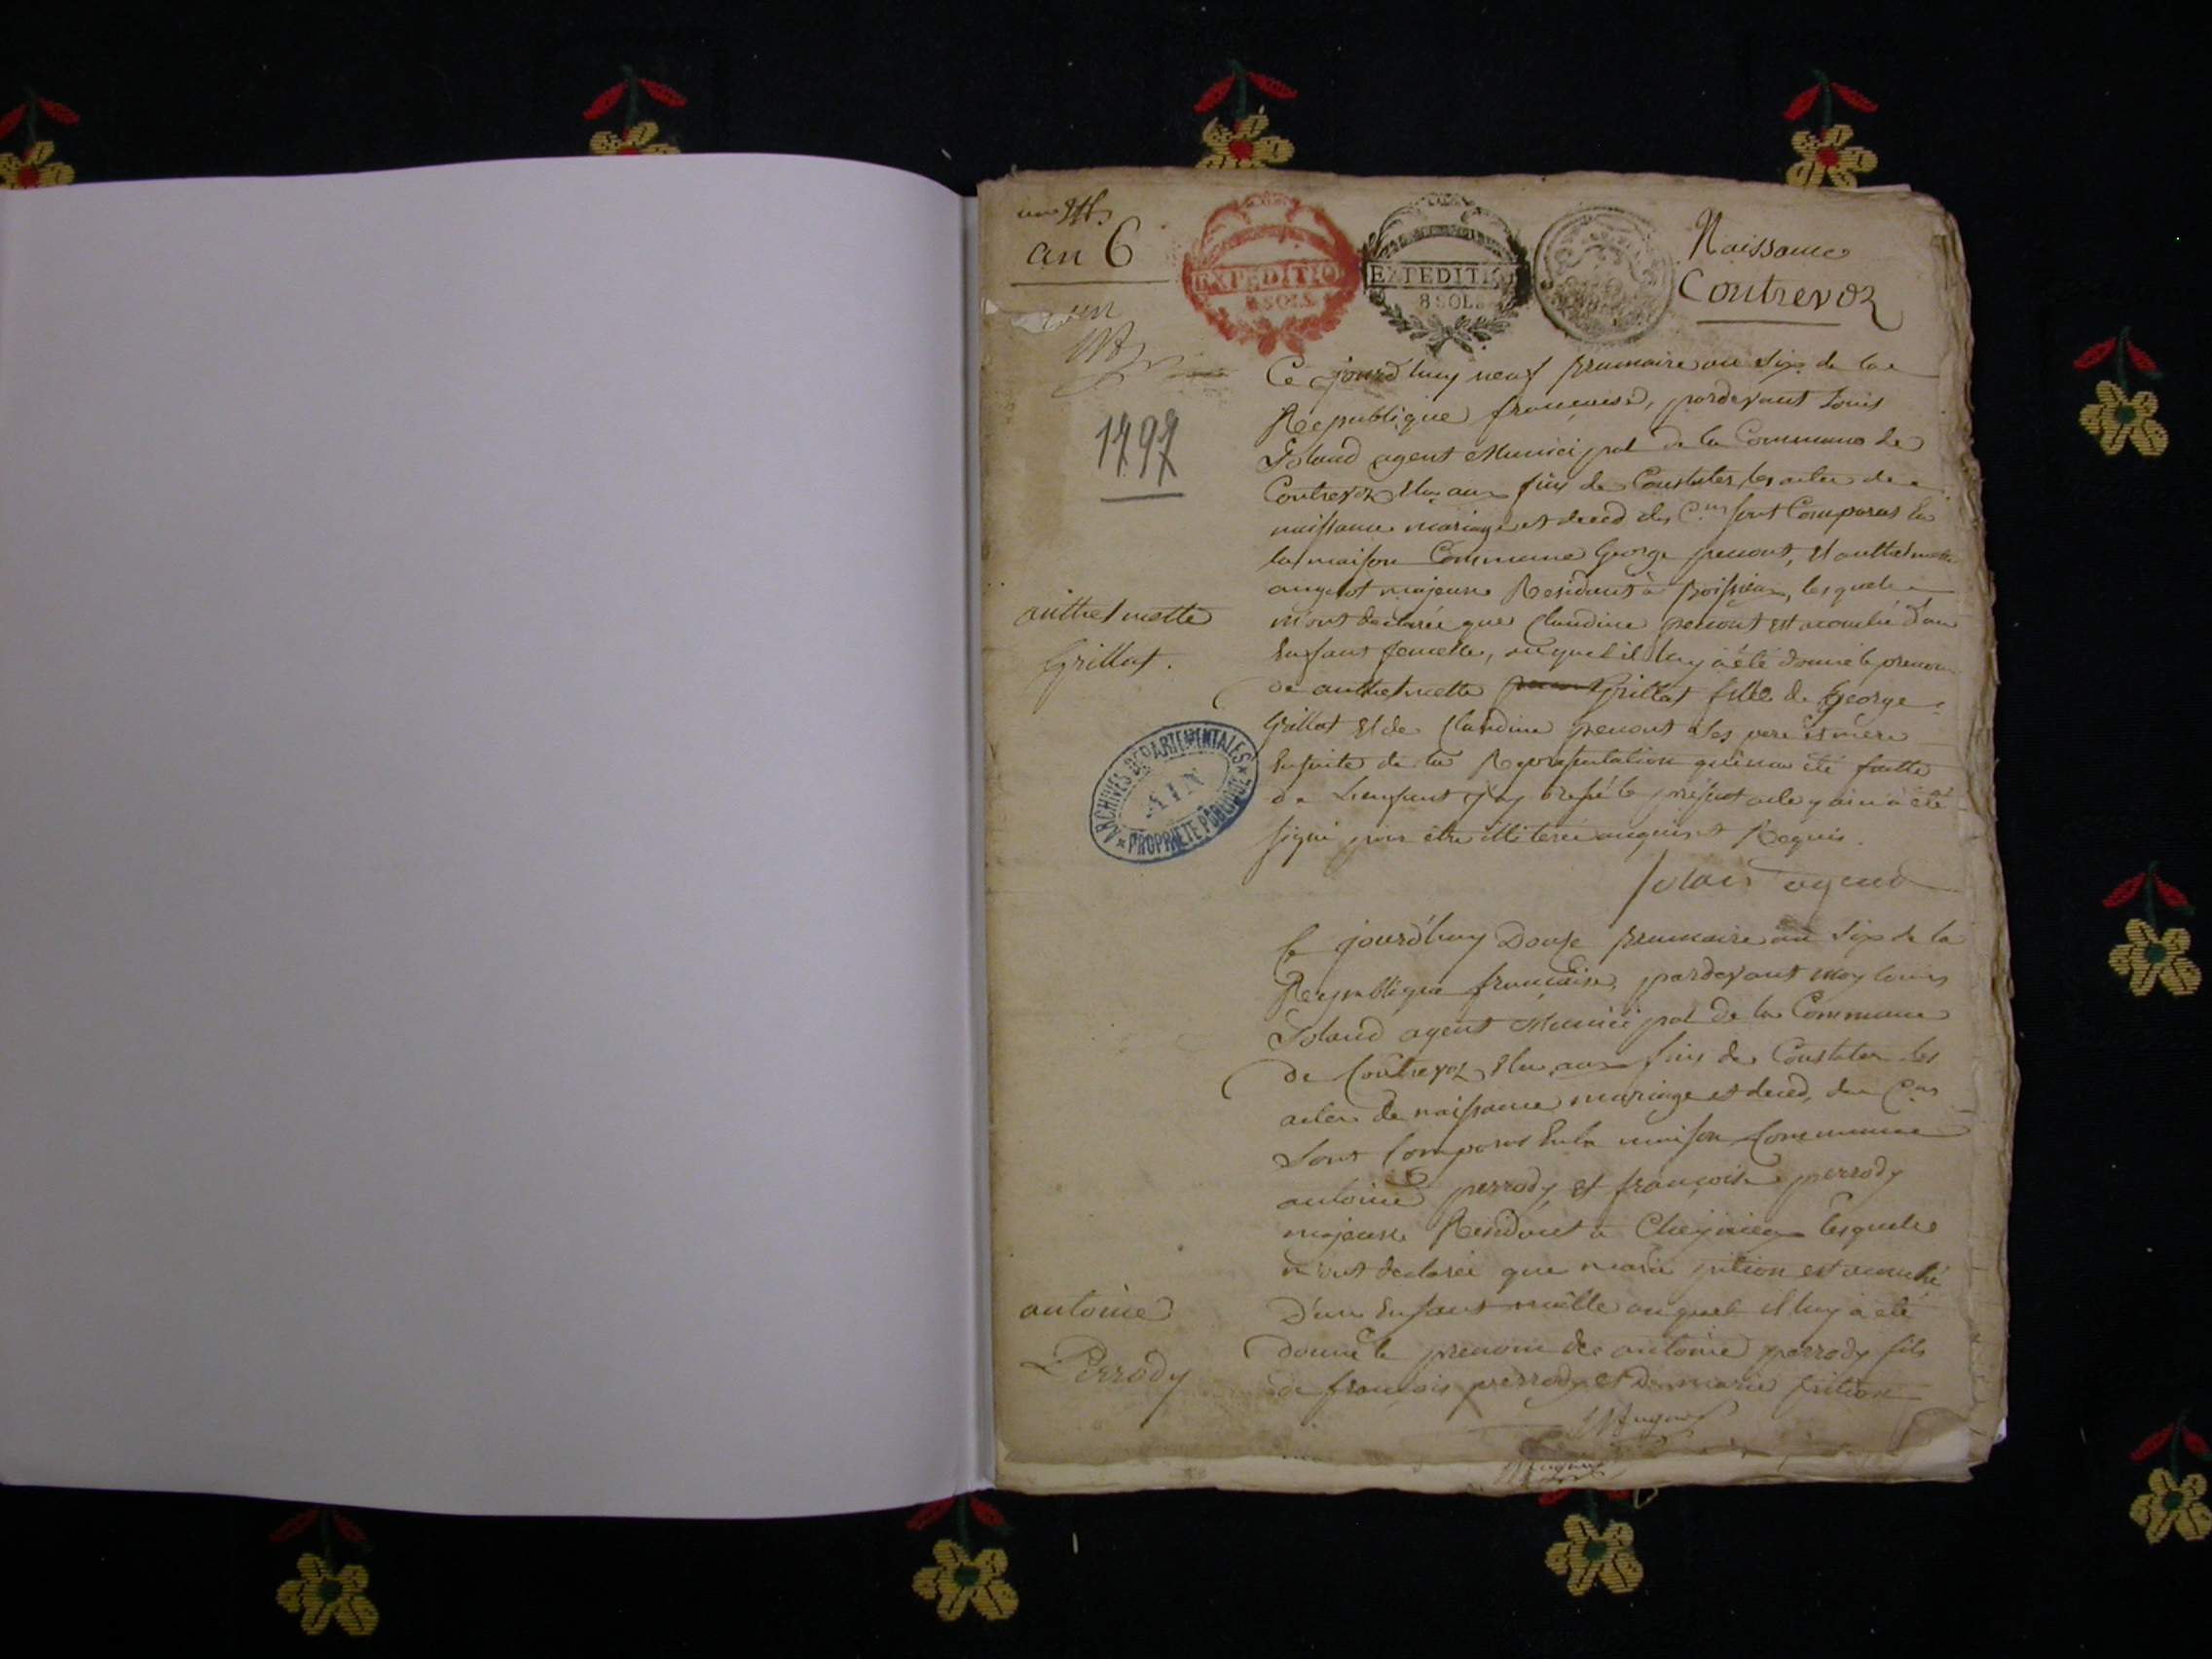 an 6
EXPEDITIO
8 SOLS
EXPEDITIO
8 SOLS
Naissance
Contrevoz
1797
Ce jourd'huy neuf brumaire an six de la
Republique francaise, pardevant Louis
Goland agent Municipal de la Commune de
Contrevoz Elu aux fins de Constater les actes de
naissance mariage et deced des C.ens sont Comparus En
la maison Commune George penont, Et anthelmette
majeurs Residents à lesquels
m'ont declarée que Claudine penont est acouché d'un
Enfant femelle, auquel il luy à été donné le prenom
anthelmette
Grillat.
de anthelmette Grillat fille de George
Grillat Et de Claudine penont ses pere et mere
Ensuite de la Representation qui m'a été faitte
de L'enfant j'ay dressé le présent acte à été
signé pour être illiteré Requis.
ARCHIVES DEPARTEMENTALES
AIN
PROPRIETE PUBLIQUE
agend
Ce jourd'huy Douze brumaire an six de la
Republique francaise, pardevant moy Louis
Goland agent Municipal de la Commune
de Contrevoz Elu aux fins de Constater les
actes de naissance mariage et deced, des C.ens
sont Comparus En la maison Commune
antoine perrody et francoise perrody
majeurs Residant a lesquels
m'ont declarée que marie pition est acouché
D'un Enfant malle auquel il luy à été
antoine
Perrody
donné le prenom de antoine perrody fils
de francois perrody et De marie pition